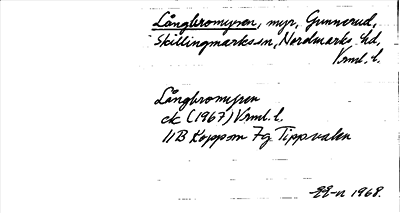 Långbromyren, myr, Gunnerud,
Skillingmarks sn, Nordmarks hd,
Vrml. l.
Långbromyren
ek (1967) Vrml. l.
11B Koppom 7g Tippvalen
1968.